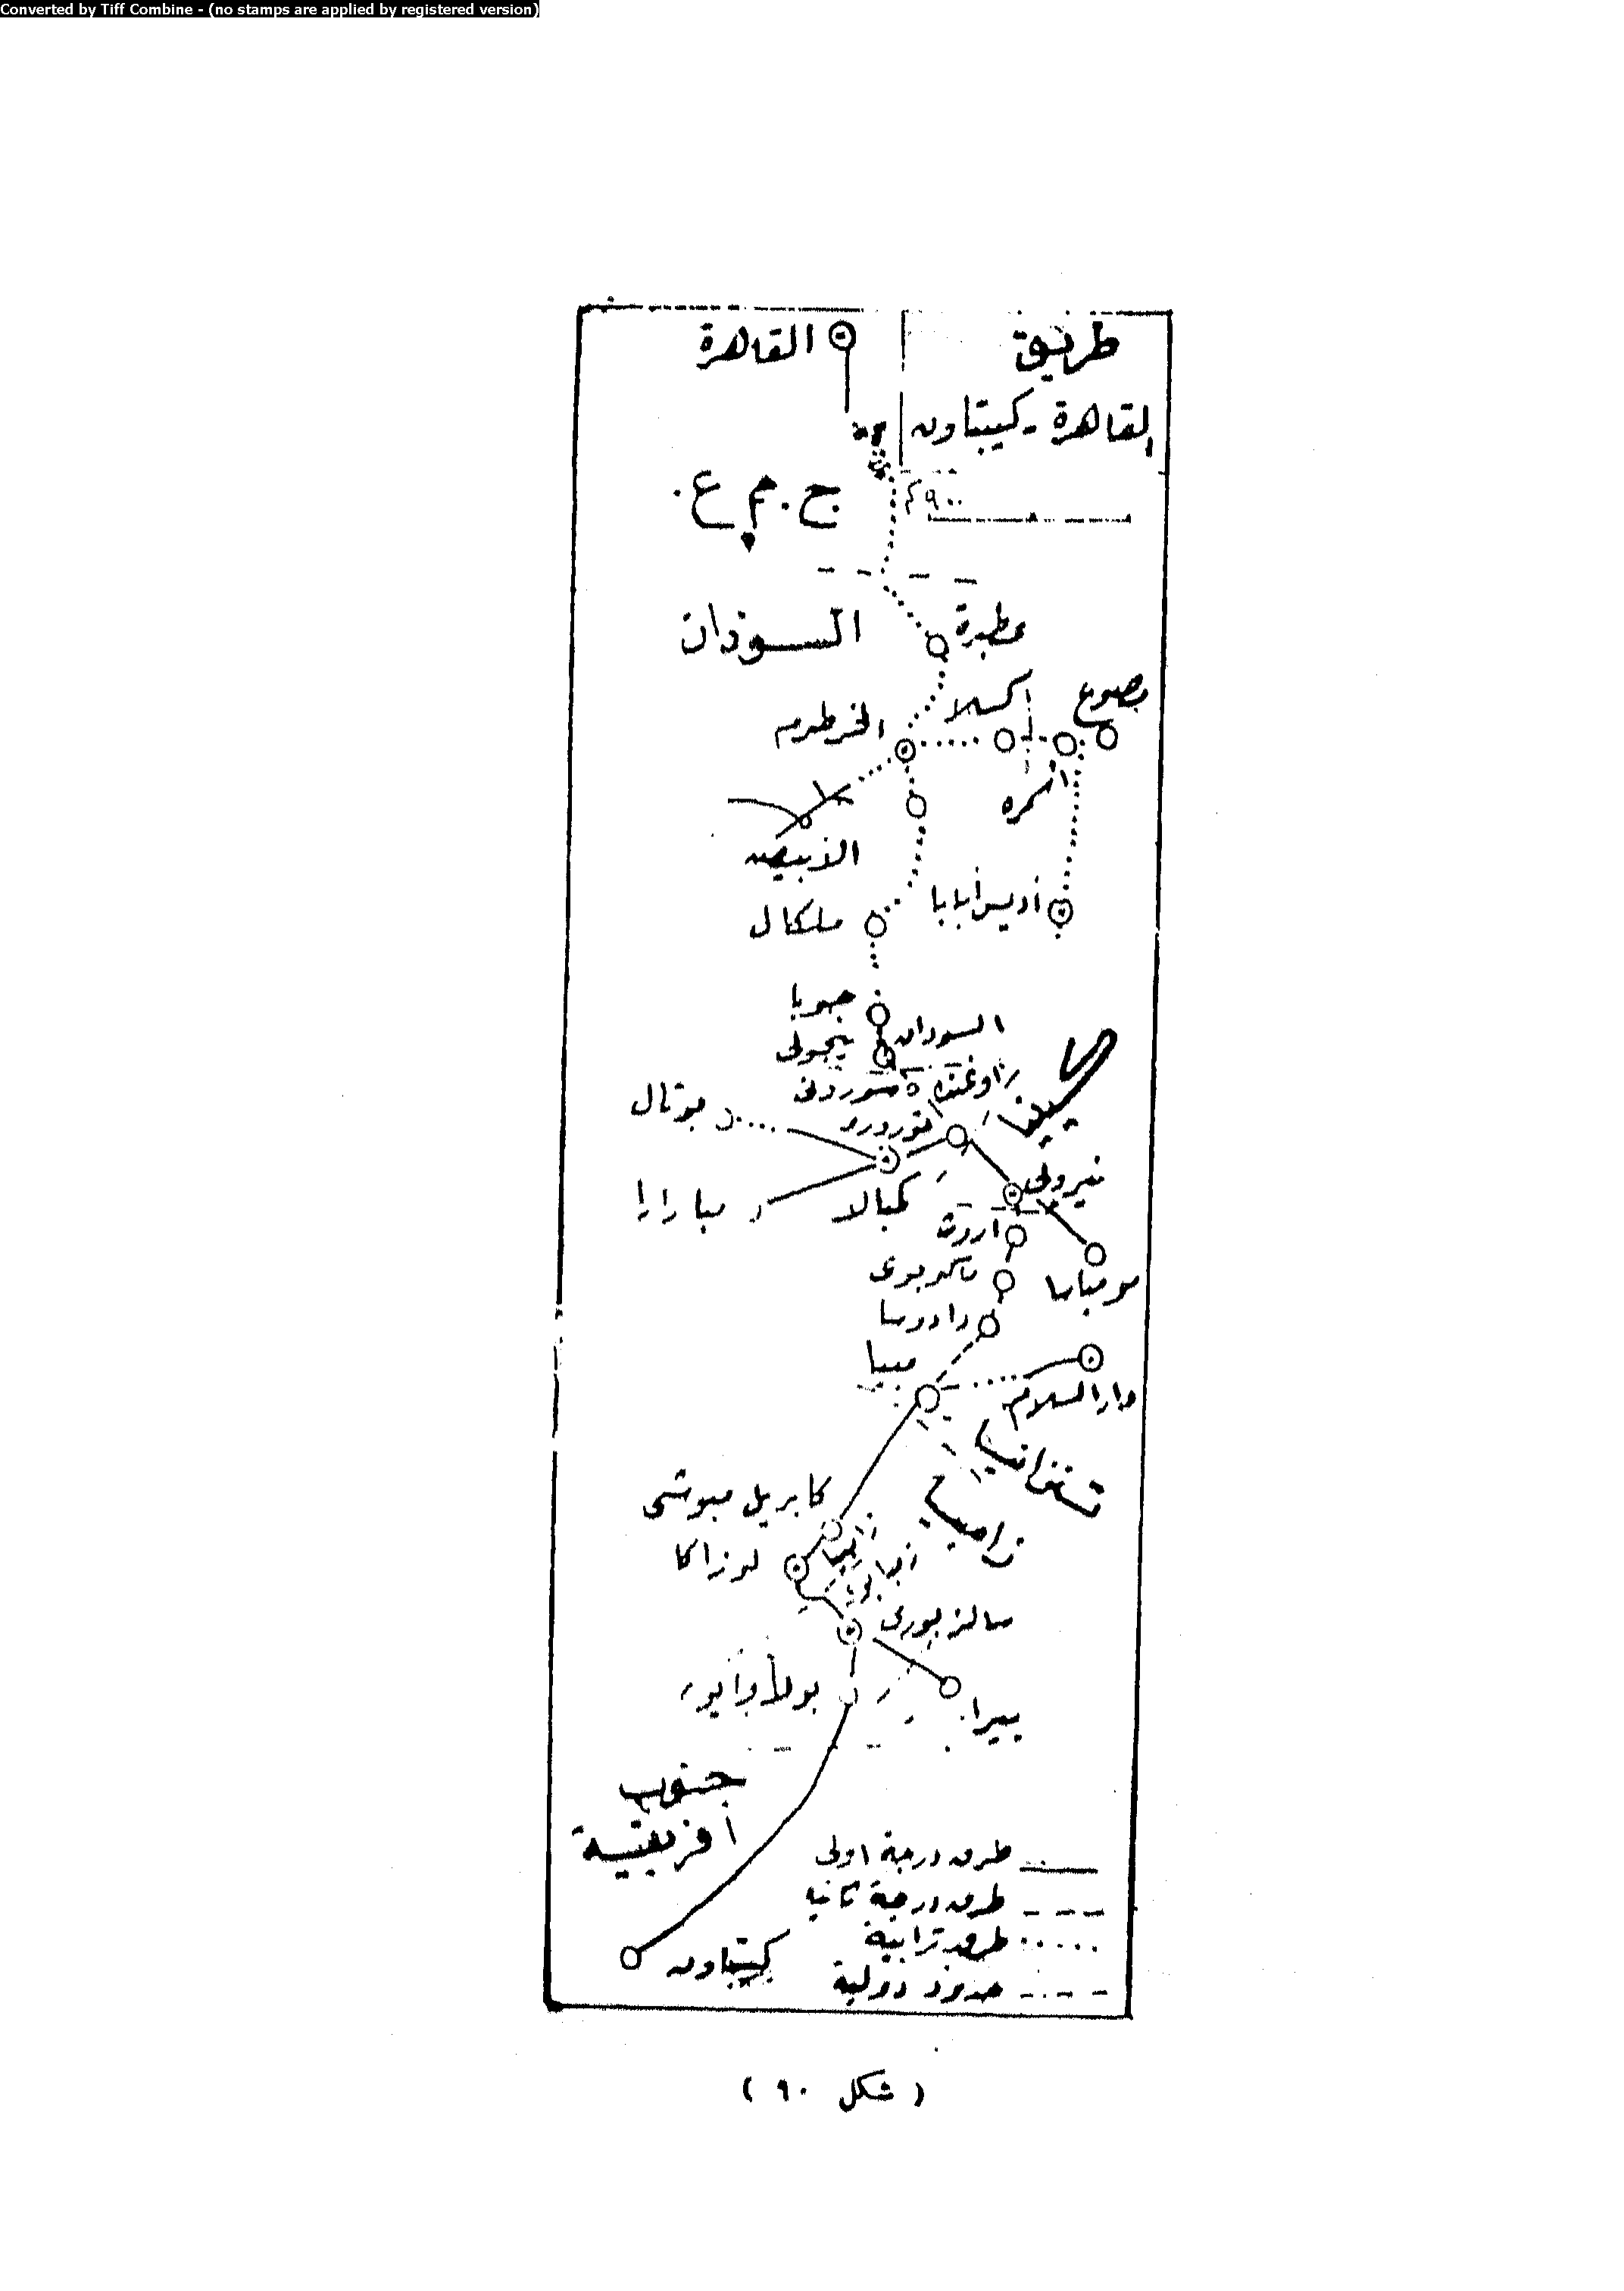 Converted by Tiff Combine - (no stamps are applied by registered version)
طريق
القاهرة - كيبتاون
٩٠٠ كم
القاهرة
ج . م ع .
السودان
عطبرة
كسلا
مصوع
الخرطوم
أسمره
الأبيض
أديس أبابا
ملكال
جوبا
السودان
أوغنده
كينيا
تورورو
كمبالا
مبارارا
نيروبى
مومباسا
مبيا
دار السلام
تنزانيا
كابريل مبوشى
زامبيا
سالزبورى
بيرا
جنوب
أفريقية
كيبتاون
طرق درجة اولى
طرق درجة ثانية
طرق ترابية
حدود دولية
( شكل ٩٠ )